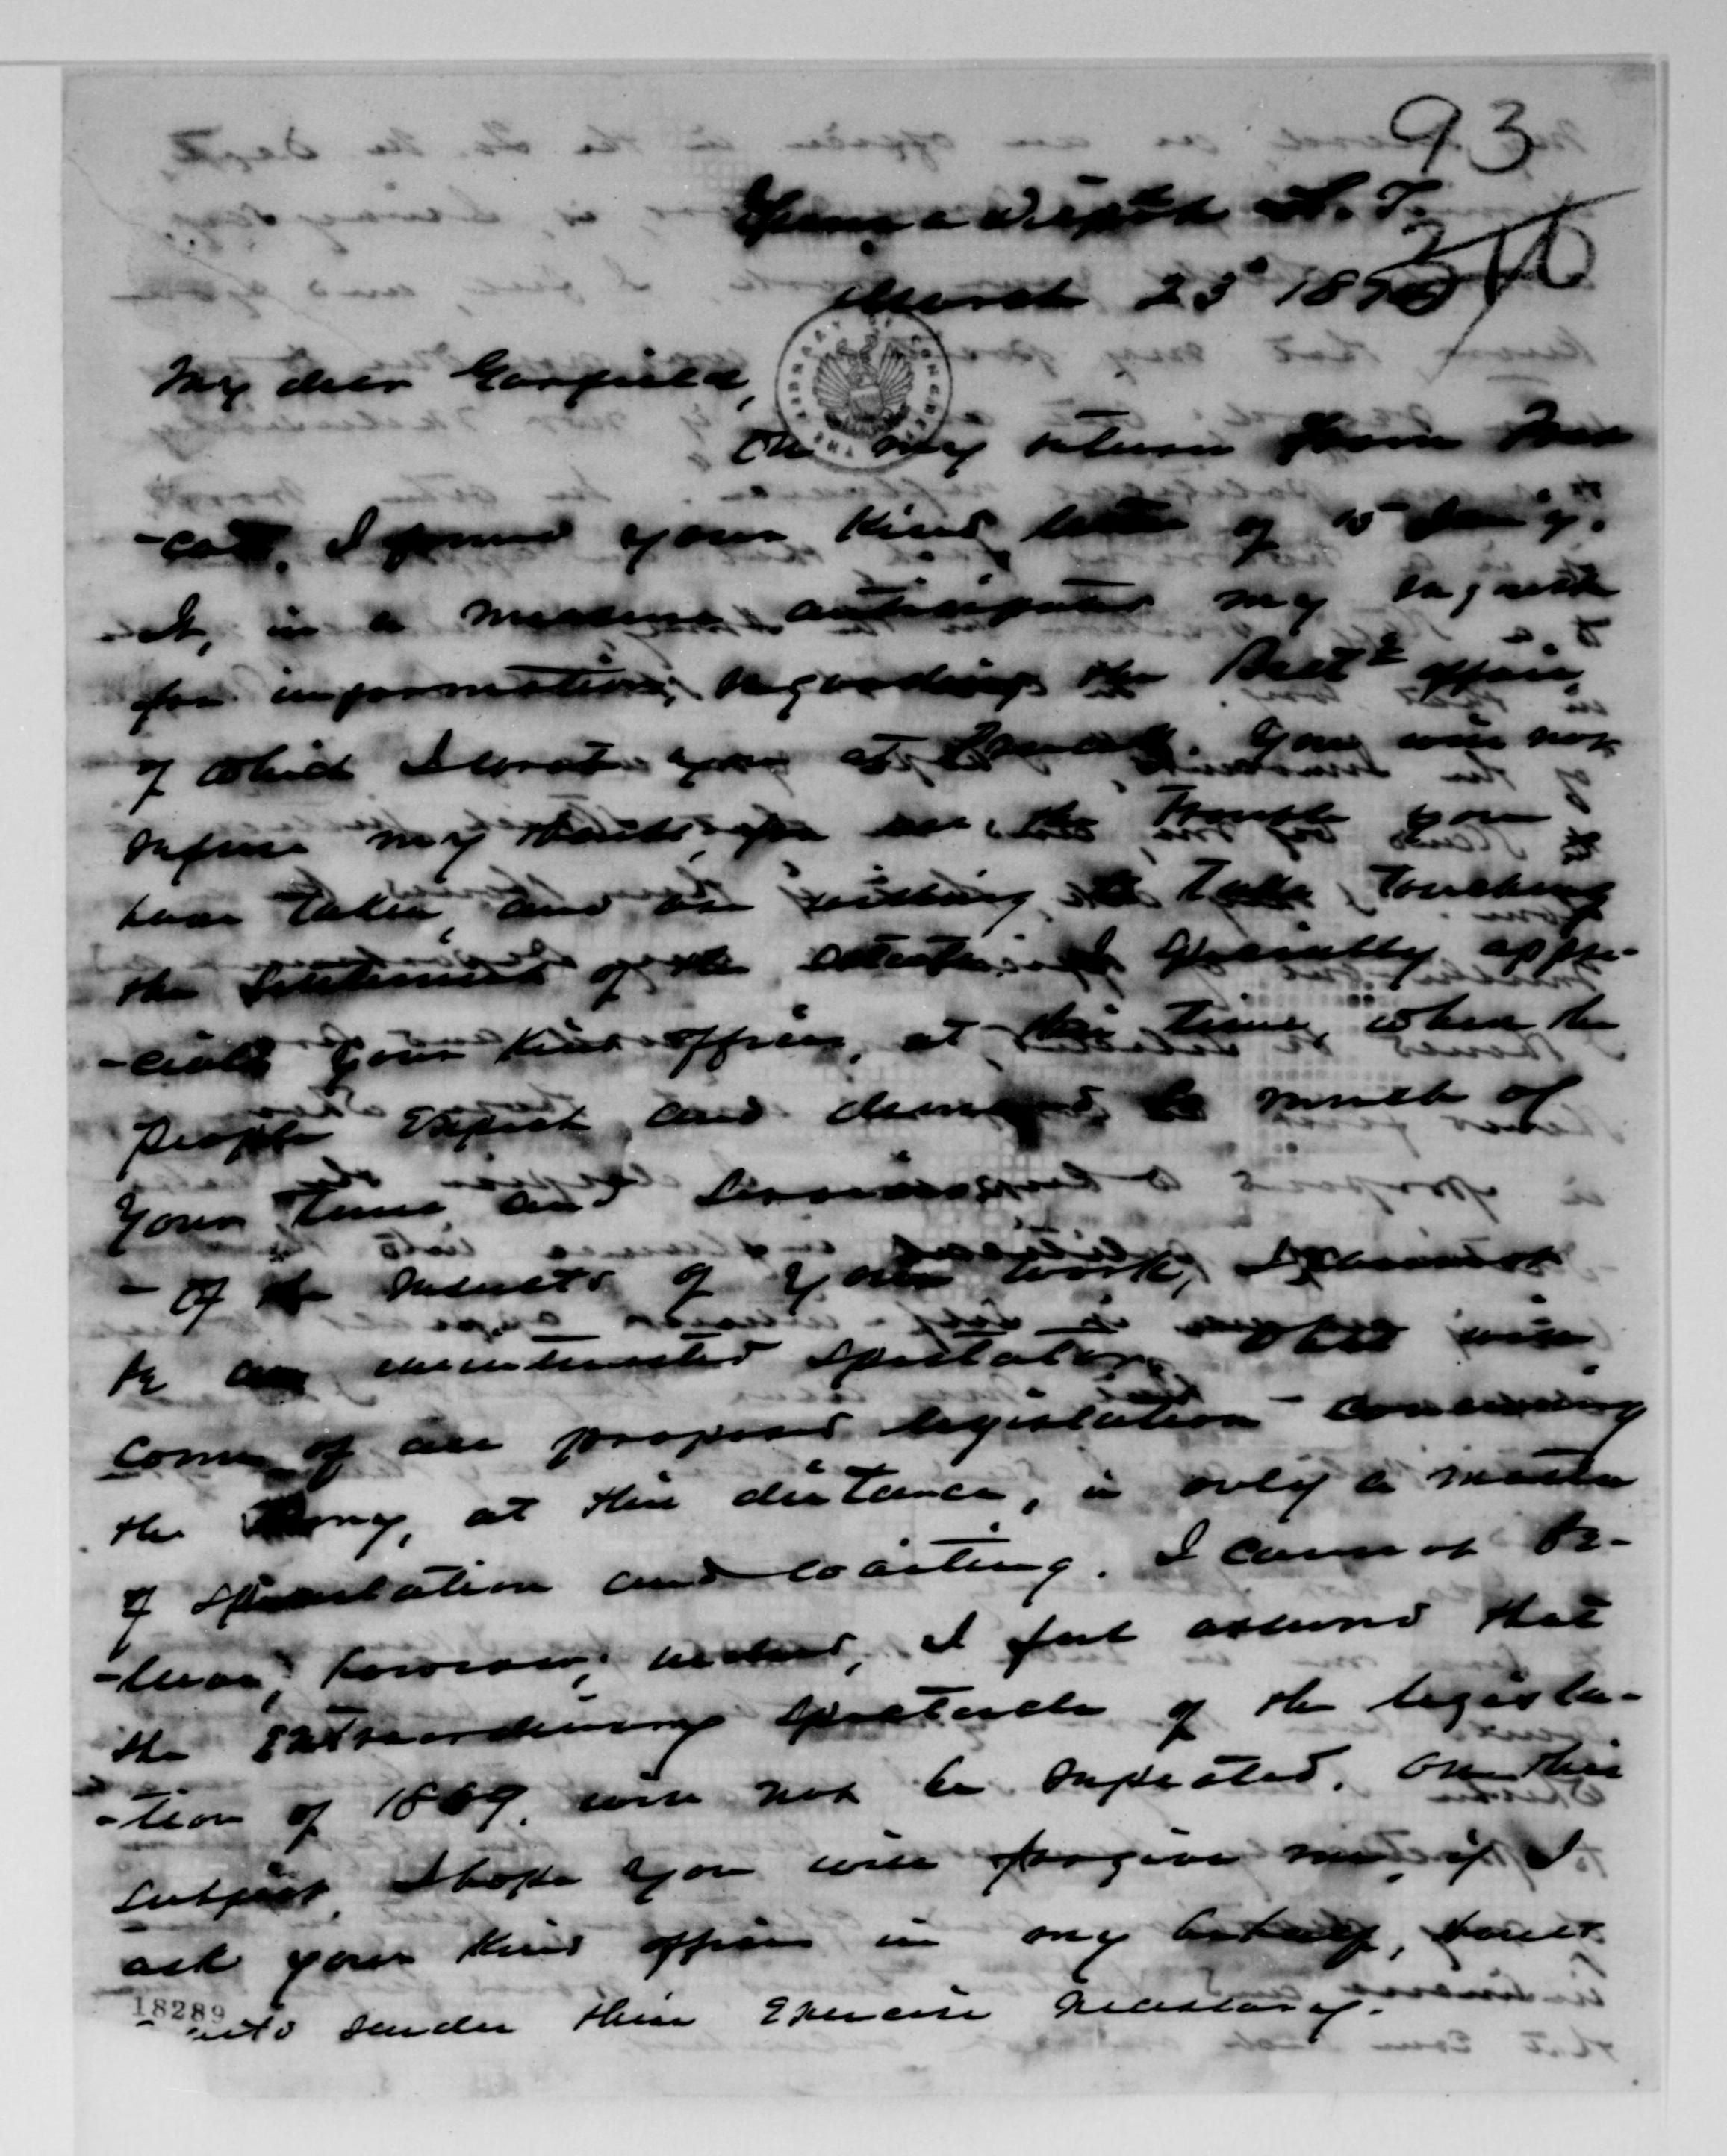 93
Yuma Depot A. T.
March 23d 187
My dear Garfield,
THE LIBRARY OF CONGRESS
On my return from
I found your kind letter of 15 Jan'y.
It, in a measure anticipated my request
for information, regarding the affair,
of which I wrote you at . You will not
refuse my thanks, for all the trouble you
have taken, and are willing to take, touching
the settlement of the . I specially appre-
-ciate your kind offices, at this time, when the
people expect and demand so much of
your time and services.
- Of the results of your work, I cannot
be an uninterested spectator. What will
come of all proposed legislation concerning
the Army, at this distance, is only a matter
of speculation and waiting. I cannot be-
-lieve, however, indeed, I feel assured that
the extraordinary spectacle of the legisla-
-tion of 1869, will not be repeated. On this
subject, I hope you will forgive me, if I
ask your kind offices in my behalf, should
render their exercise necessary.
18289